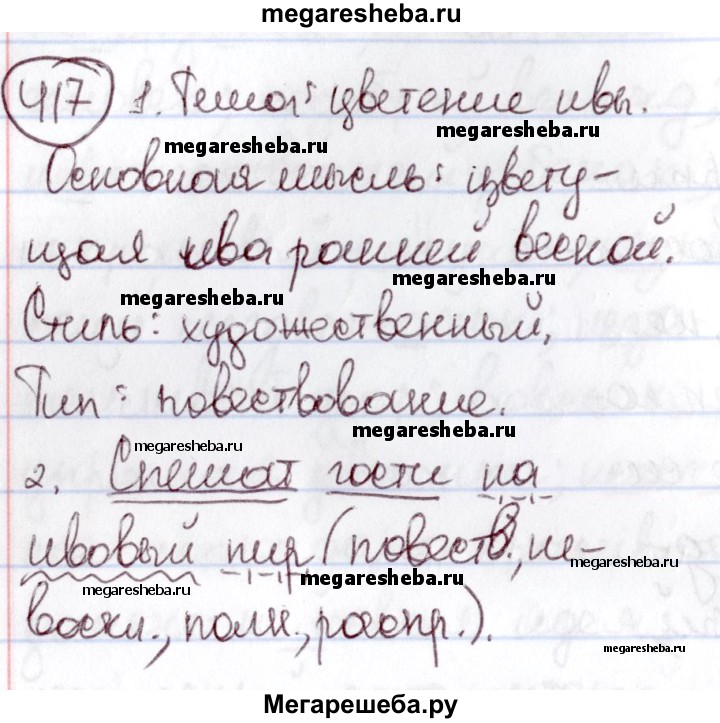 megaresheba.ru
417 1. Тема: цветение ивы.
megaresheba.ru
megaresheba.ru
Основная мысль: цвету-
щая ива ранней весной.
megaresheba.ru
megaresheba.ru
Стиль: художественный,
Тип: повествование.
megaresheba.ru
megaresheba.ru
2. Спешат гости на
ивовый пир (повеств., не-
megaresheba.ru
megaresheba.ru
воскл., полн., распр.).
megaresheba.ru
Мегарешеба.ру